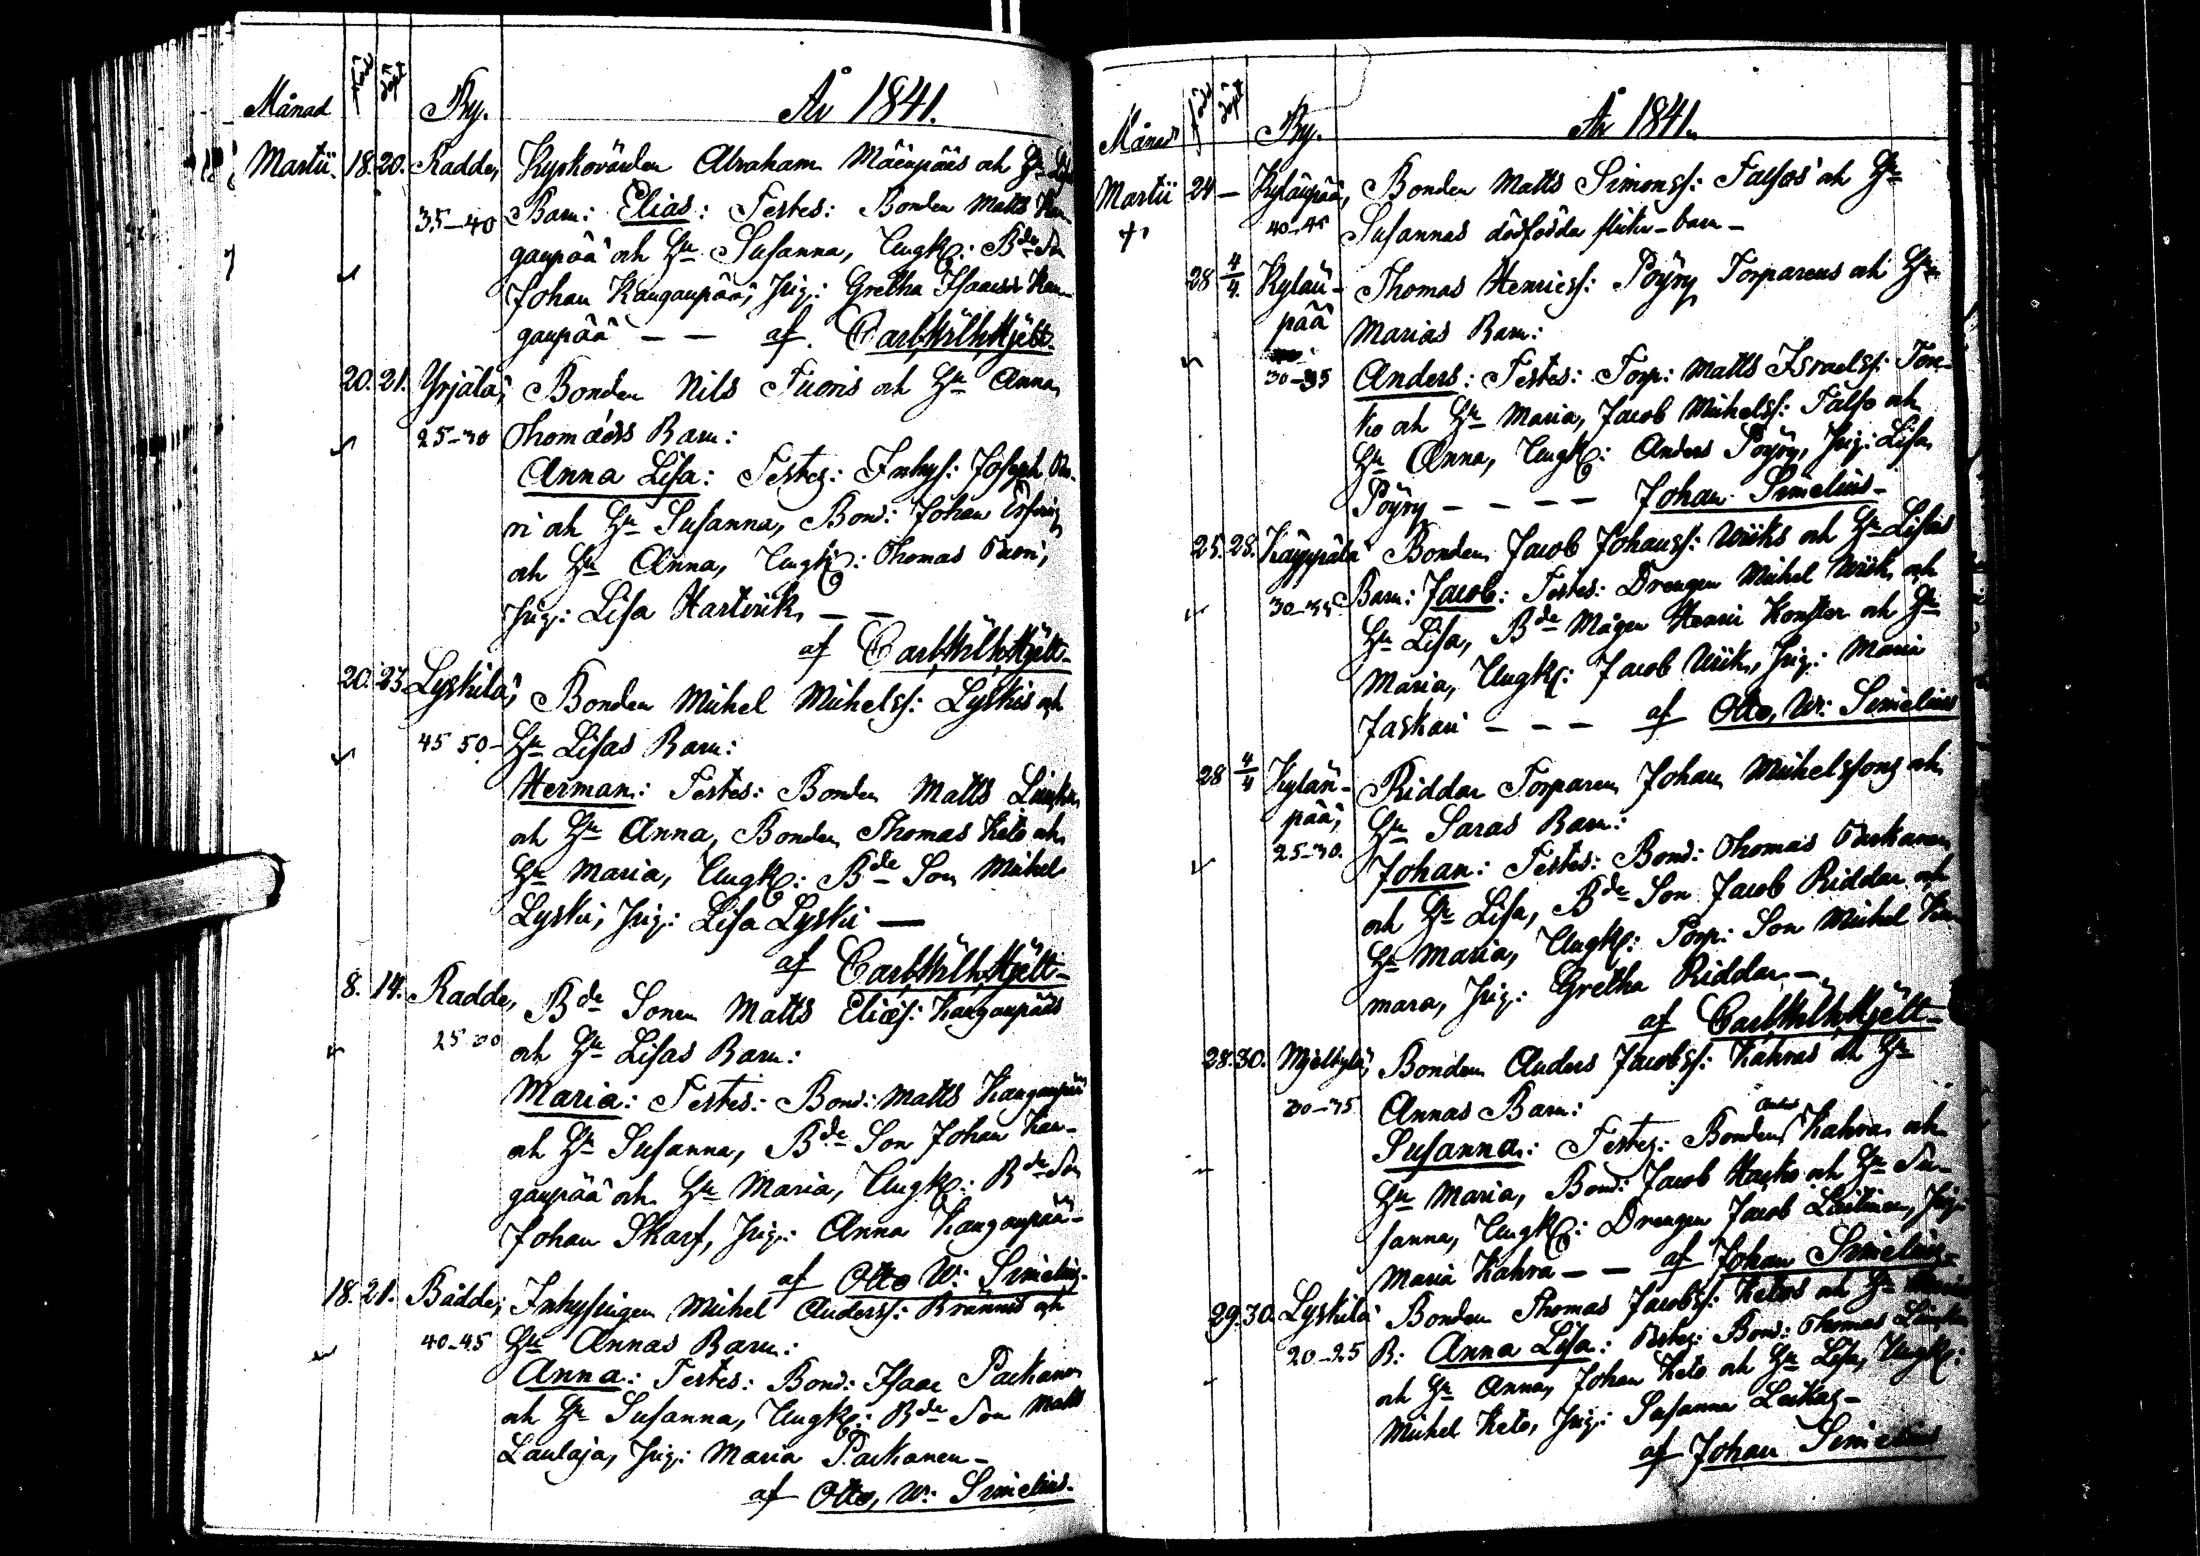 Månad född döpt By. År 1841.
Martii 18. 20. Radde, Kyrkovärden Abraham Mäenpääs och Hu
35-40 Barn: Elias: Testes: Bonden Matts Kan
gaupää och Hu Susanna, Ungk: Bde Son
Johan Kangaupää, Pig: Gretha Isaacsdr Kan-
gaupää — — af Carl Wilh Hjelt
20. 21. Yrjälä, Bonden Nils Tuoris och Hu Anna
25-30 Thomædrs Barn:
Anna Lisa: Testes: Inhys: Joseph
ri och Hu Susanna, Bond: Johan
och Hu Anna, Ungk: Thomas Tuori,
Pig: Lisa Hartwik — —
af Carl Wilh Hjelt
20. 23. Lyskilä, Bonden Michel Michelss: Lyskis och
45 50- Hu Lisas Barn:
Herman: Testes: Bonden Matts
och Hu Anna, Bonden Thomas Keto och
Hu Maria, Ungk: Bde Son Michel
Lyski, Pig: Lisa Lyski —
af Carl Wilh Hjelt
8. 14. Radde, Bde Sonen Matts Eliæs: Kangaupääs
25 30 och Hu Lisas Barn:
Maria: Testes: Bond: Matts Kangaupää
och Hu Susanna, Bde Son Johan Kan-
gaupää och Hu Maria, Ungk: Bde Son
Johan Skarf, Pig: Anna Kangaupää-
af Otto W: Simelius-
18. 21. Bådde, Inhysingen Michel Anderss: Brännus och
40-45 Hu Annas Barn:
Anna: Testes: Bond: Isaac Packanen
och Hu Susanna, Ungk: Bde Son Matts
Laulaja, Pig: Maria Packanen-
af Otto, W: Simelius-
Månad född döpt By. År 1841.
Martii 24 — Kylänpää, Bonden Matts Simonss: Falsos och Hu
+ 40-45 Susannas dödfödda flicko-barn-
28 4/4 Kylän- Thomas Henricss: Pöyry Torparens och Hu
pää Marias Barn:
30-35 Anders: Testes: Torp: Matts Israelss: Ton-
ko och Hu Maria, Jacob Michelss: Falso och
Hu Anna, Ungk: Anders Pöyry, Pig: Lisa
Pöyry — — — — Johan Simelius-
25. 28. Käyppälä Bonden Jacob Johanss: Wiiks och Hu Lisas
30-35 Barn: Jacob: Testes: Drengen Michel Wiik och
Hu Lisa, Bde Mågen Henric Konster och Hu
Maria, Ungk: Jacob Wiik, Pig: Maria
Jaskari — — — af Otto, W: Simelius
28 4/4 Kylän- Riddar Torparen Johan Michelssons och
pää, Hu Saras Barn:
25-30. Johan: Testes: Bond: Thomas Packanen
och Hu Lisa, Bde Son Jacob Riddar och
Hu Maria, Ungk: Torp: Son Michel Kam
mara, Pig: Gretha Riddar —
af Carl Wilh Hjelt-
28. 30. Mjelkylä, Bonden Anders Jacobss: Kahras och Hu
30-35 Annas Barn:
Susanna: Testes: Bonden Anders Kahra och
Hu Maria, Bond: Jacob och Hu Su-
sanna, Ungk: Drengen Jacob Laitinen, Pig:
Maria Kahra — — af Johan Simelius-
29. 30. Lyskilä Bonden Thomas Jacobss: Ketos och Hu
20-25 B: Anna Lisa: Testes: Bond: Thomas
och Hu Anna, Johan Keto och Hu Lisa, Ungk:
Michel Keto, Pig: Susanna Leskas-
af Johan Simelius